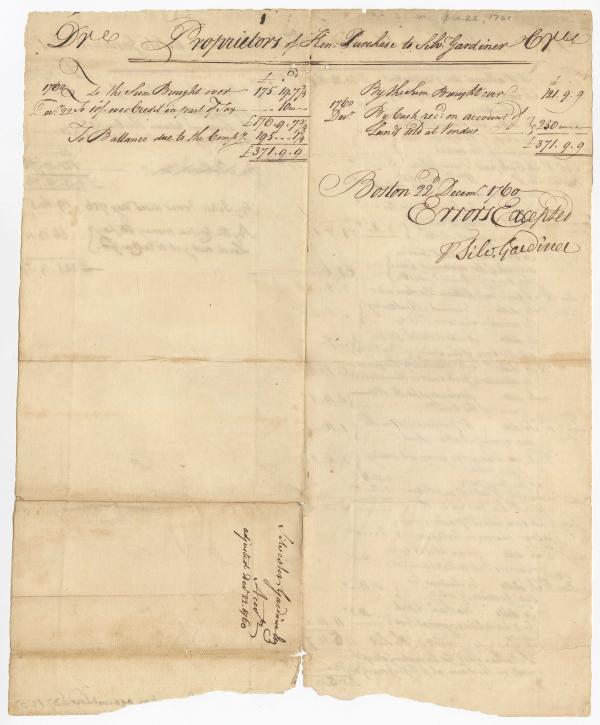 Dec. 22, 1760
Dre Proprietors of Ken. Purchase to Silv. Gardiner Cre
1760 To the Sum Brought over 175.19.7¾
Decr. 22 To over Credit in part of Day .. 10 ..
£176.9.7¾
To Ballance due to the Compy. 195 .. 1¼
£371.9.9
By the Sum Brought over 121.9.9
1760
Decr. By Cash recd. on account of
Lands sold at Vendue 250
£371.9.9
Boston 22d. Decemr. 1760
Errors Excepted
Silv. Gardiner
Silvester Gardiner by
Acct.
adjusted Decr. 22. 1760